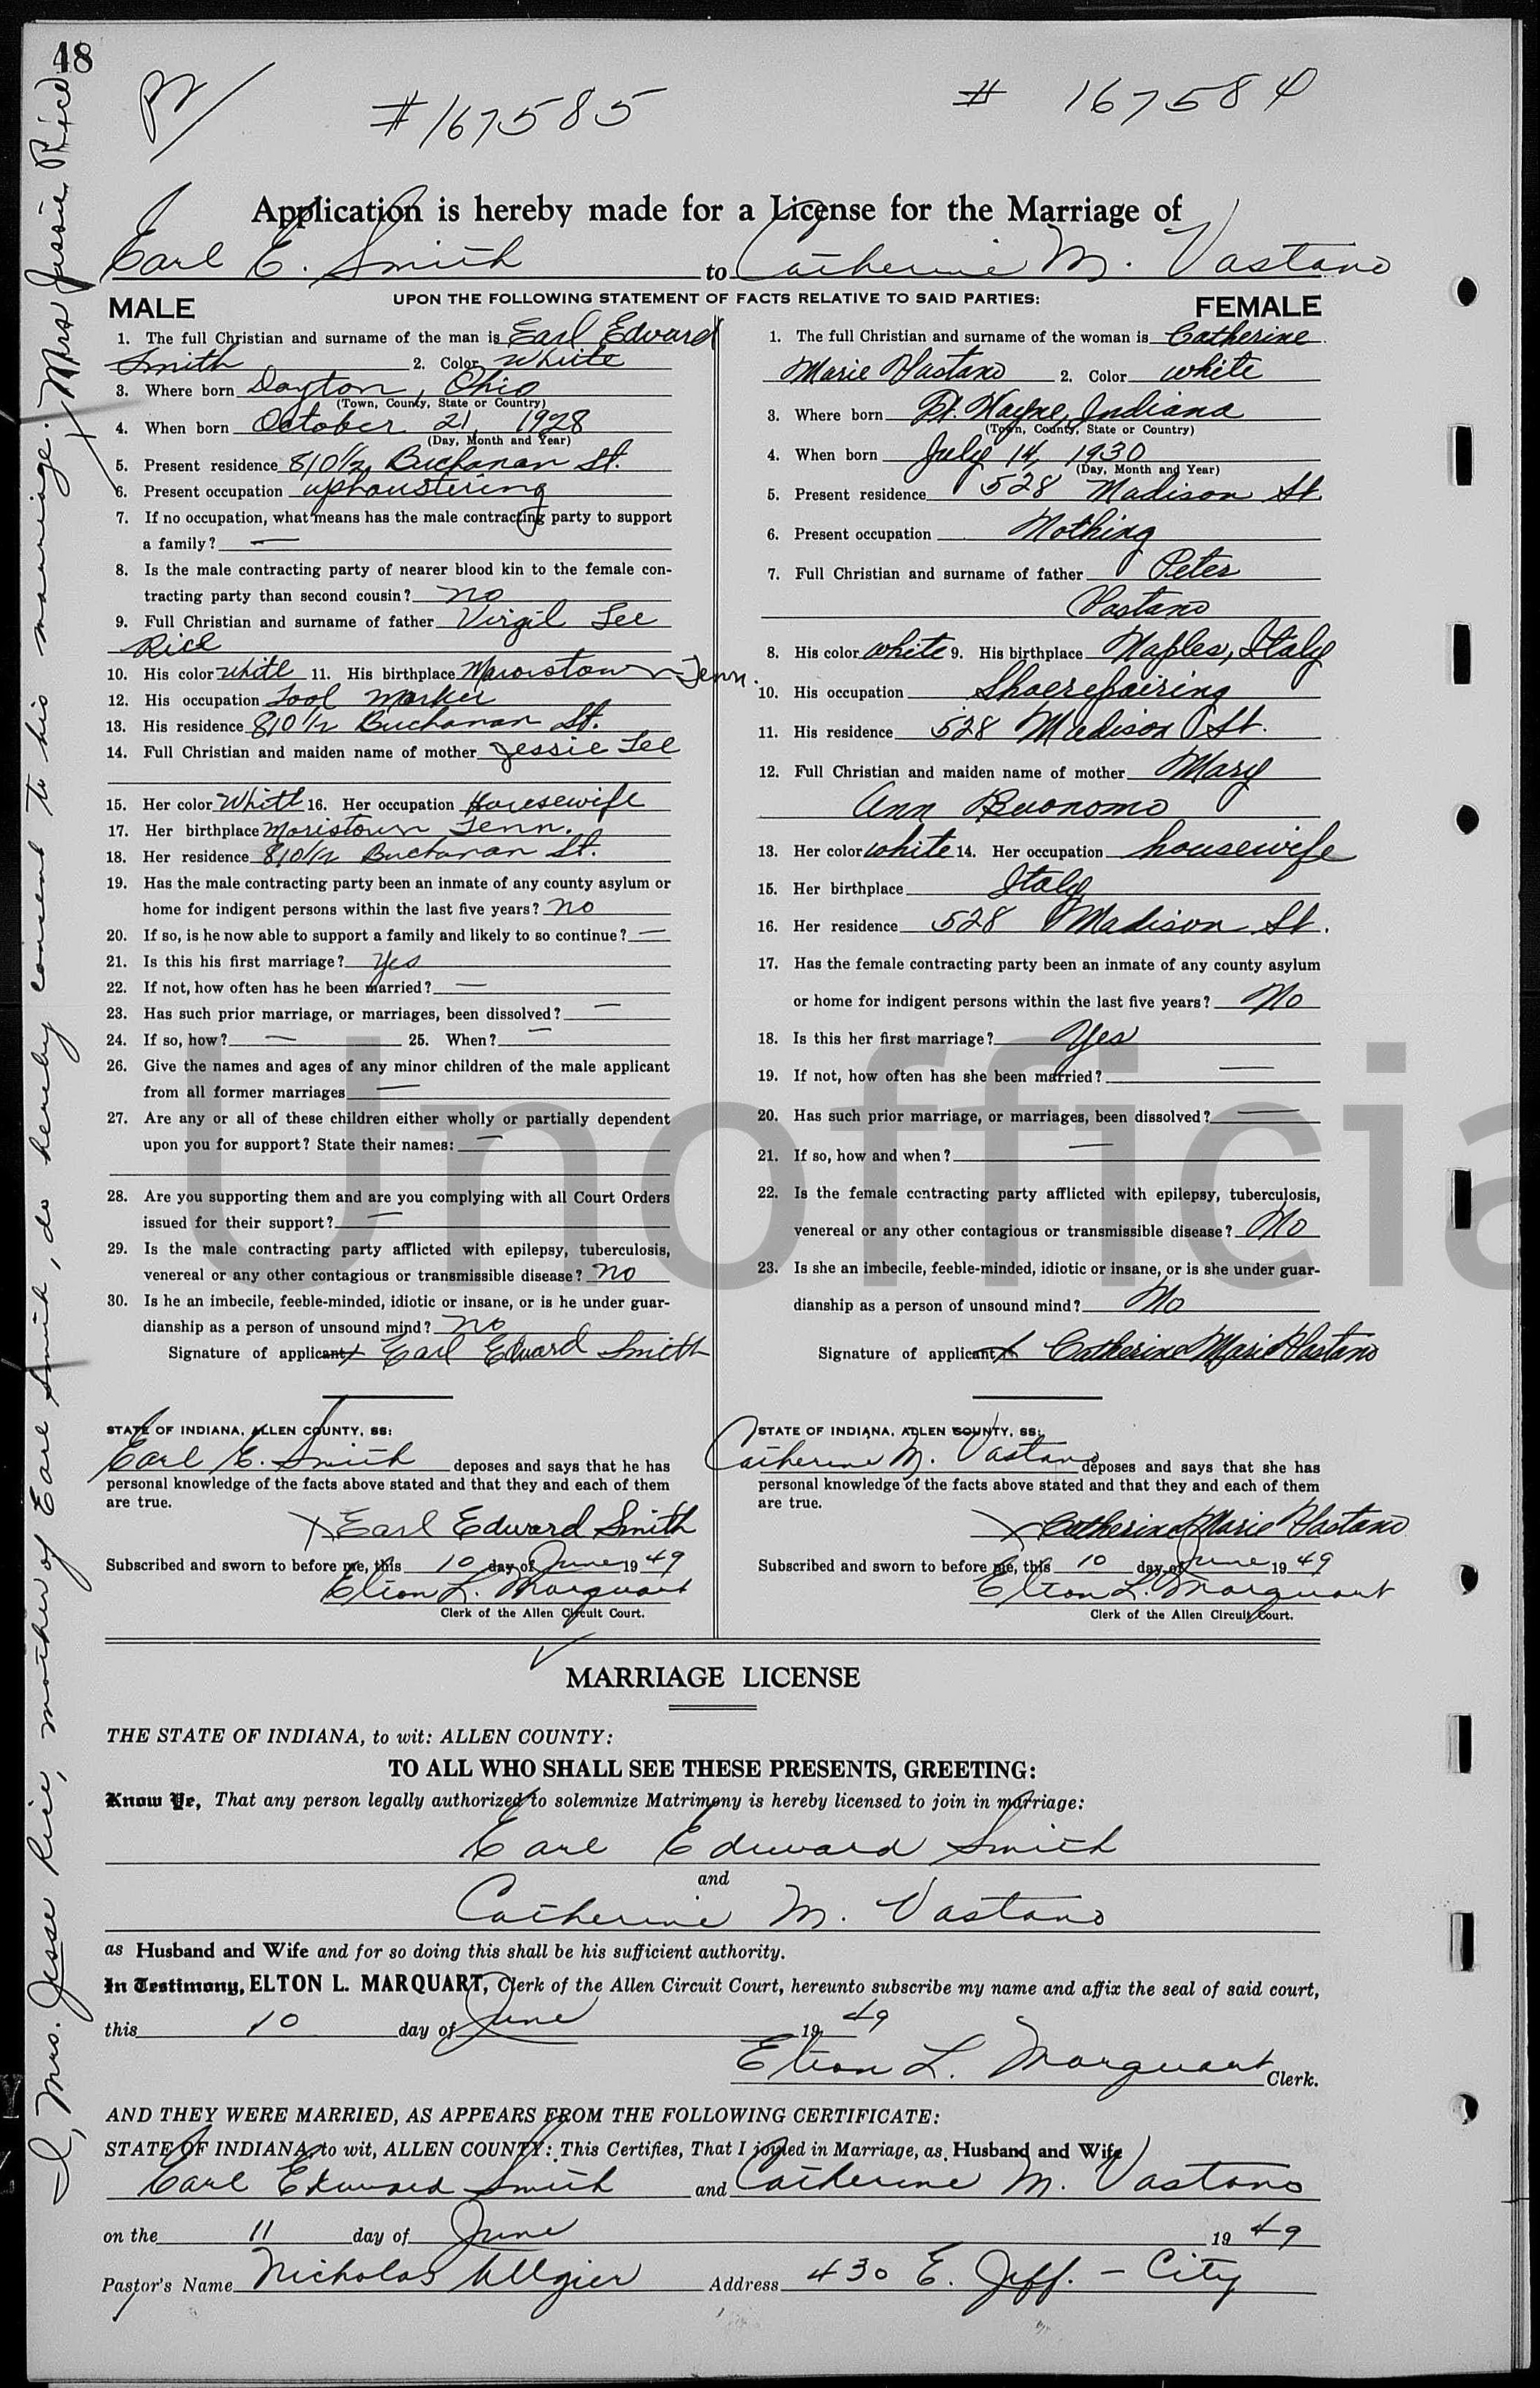 48
# 167585
# 167584
Application is hereby made for a License for the Marriage of
Earl E. Smith to Catherine M. Vastano
UPON THE FOLLOWING STATEMENT OF FACTS RELATIVE TO SAID PARTIES:
MALE
1. The full Christian and surname of the man is Earl Edward
Smith 2. Color White
3. Where born Dayton, Ohio
(Town, County, State or Country)
4. When born October 21, 1928
(Day, Month and Year)
5. Present residence 810 1/2 Buchanan St.
6. Present occupation uphoustering
7. If no occupation, what means has the male contracting party to support
a family? —
8. Is the male contracting party of nearer blood kin to the female con-
tracting party than second cousin? no
9. Full Christian and surname of father Virgil Lee
Rice
10. His color White 11. His birthplace Morristown Tenn.
12. His occupation Tool Marker
13. His residence 810 1/2 Buchanan St.
14. Full Christian and maiden name of mother Jessie Lee
15. Her color White 16. Her occupation Housewife
17. Her birthplace Moristown Tenn.
18. Her residence 810 1/2 Buchanan St.
19. Has the male contracting party been an inmate of any county asylum or
home for indigent persons within the last five years? no
20. If so, is he now able to support a family and likely to so continue? —
21. Is this his first marriage? Yes
22. If not, how often has he been married? —
23. Has such prior marriage, or marriages, been dissolved? —
24. If so, how? — 25. When? —
26. Give the names and ages of any minor children of the male applicant
from all former marriages —
27. Are any or all of these children either wholly or partially dependent
upon you for support? State their names: —
28. Are you supporting them and are you complying with all Court Orders
issued for their support? —
29. Is the male contracting party afflicted with epilepsy, tuberculosis,
venereal or any other contagious or transmissible disease? no
30. Is he an imbecile, feeble-minded, idiotic or insane, or is he under guar-
dianship as a person of unsound mind? no
Signature of applicant x Earl Edward Smith
STATE OF INDIANA, ALLEN COUNTY, SS:
Earl E. Smith deposes and says that he has
personal knowledge of the facts above stated and that they and each of them
are true.
x Earl Edward Smith
Subscribed and sworn to before me, this 10 day of June 1949
Elton L. Marquart
Clerk of the Allen Circuit Court.
FEMALE
1. The full Christian and surname of the woman is Catherine
Marie Vastano 2. Color white
3. Where born Ft. Wayne, Indiana
(Town, County, State or Country)
4. When born July 14, 1930
(Day, Month and Year)
5. Present residence 528 Madison St.
6. Present occupation Nothing
7. Full Christian and surname of father Peter
Vastano
8. His color white 9. His birthplace Naples, Italy
10. His occupation Shoerepairing
11. His residence 528 Madison St.
12. Full Christian and maiden name of mother Mary
Ann Buonomo
13. Her color white 14. Her occupation housewife
15. Her birthplace Italy
16. Her residence 528 Madison St.
17. Has the female contracting party been an inmate of any county asylum
or home for indigent persons within the last five years? No
18. Is this her first marriage? Yes
19. If not, how often has she been married? —
20. Has such prior marriage, or marriages, been dissolved? —
21. If so, how and when? —
22. Is the female contracting party afflicted with epilepsy, tuberculosis,
venereal or any other contagious or transmissible disease? No
23. Is she an imbecile, feeble-minded, idiotic or insane, or is she under guar-
dianship as a person of unsound mind? No
Signature of applicant x Catherine Marie Vastano
STATE OF INDIANA, ALLEN COUNTY, SS:
Catherine M. Vastano deposes and says that she has
personal knowledge of the facts above stated and that they and each of them
are true.
x Catherine Marie Vastano
Subscribed and sworn to before me, this 10 day of June 1949
Elton L. Marquart
Clerk of the Allen Circuit Court.
MARRIAGE LICENSE
THE STATE OF INDIANA, to wit: ALLEN COUNTY:
TO ALL WHO SHALL SEE THESE PRESENTS, GREETING:
Know Ye, That any person legally authorized to solemnize Matrimony is hereby licensed to join in marriage:
Earl Edward Smith
and
Catherine M. Vastano
as Husband and Wife and for so doing this shall be his sufficient authority.
In Testimony, ELTON L. MARQUART, Clerk of the Allen Circuit Court, hereunto subscribe my name and affix the seal of said court,
this 10 day of June 1949
Elton L. Marquart Clerk.
AND THEY WERE MARRIED, AS APPEARS FROM THE FOLLOWING CERTIFICATE:
STATE OF INDIANA, to wit, ALLEN COUNTY: This Certifies, That I joined in Marriage, as Husband and Wife
Earl Edward Smith and Catherine M. Vastano
on the 11 day of June 1949
Pastor's Name Nicholas Address 430 E. Jeff. - City
I, Mrs. Jesse Rice, mother of Earl Smith, do hereby consent to his marriage. x Mrs Jessie Rice
Unofficia